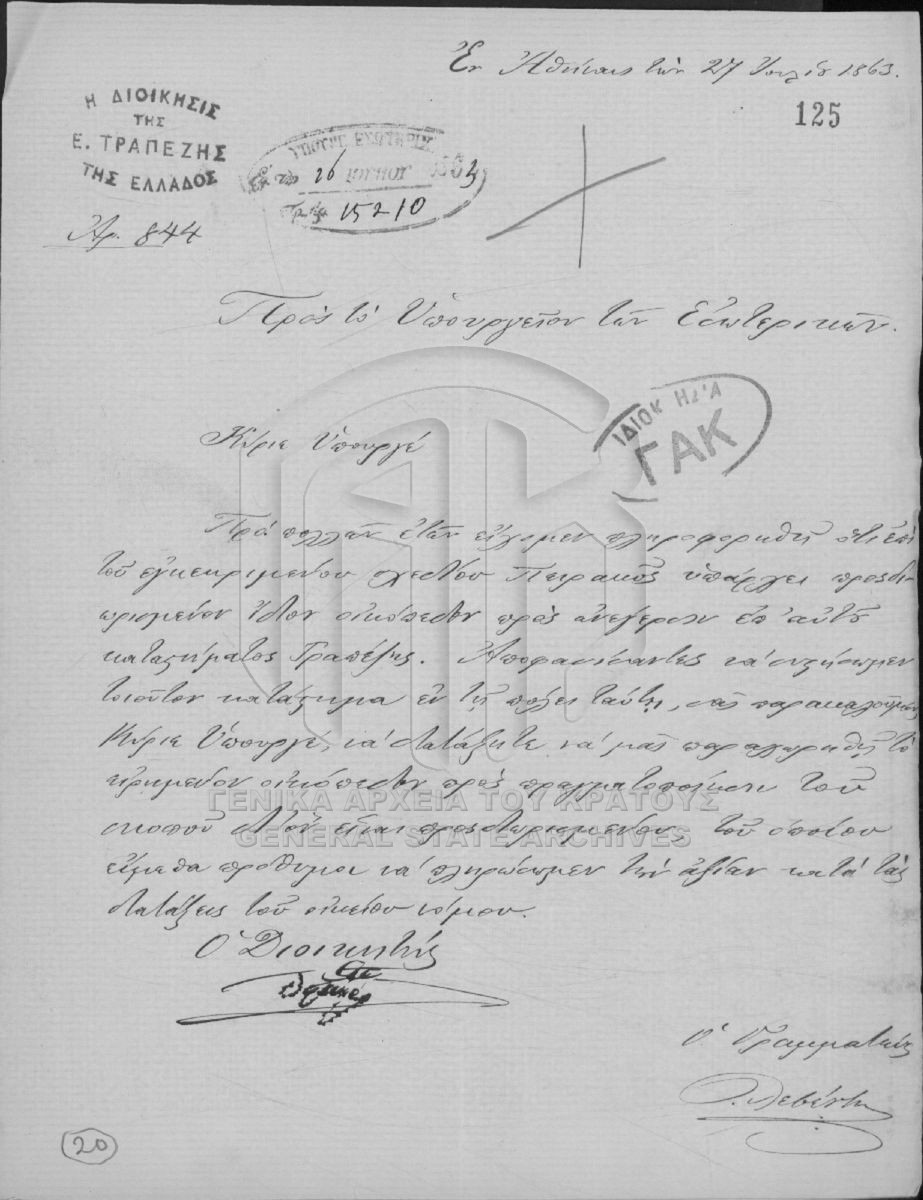 Ἐν Ἀθήναις τὴν 27 Ἰουλίου 1863.
125
Η ΔΙΟΙΚΗΣΙΣ
ΤΗΣ
Ε. ΤΡΑΠΕΖΗΣ
ΤΗΣ ΕΛΛΑΔΟΣ
ΥΠΟΥΡΓ. ΕΣΩΤΕΡΙΚ.
26
15210
Ἀρ. 844
Πρὸς τὸ Ὑπουργεῖον τῶν Ἐσωτερικῶν.
ΙΔΙΟΚ ΗΣ'Α
ΓΑΚ
Κύριε Ὑπουργέ
Πρὸ πολλῶν ἐτῶν εἴχομεν πληροφορηθῆ ὅτι ἐπὶ
τοῦ ἐγκεκριμένου σχεδίου Πειραιῶς ὑπάρχει προσδι
ωρισμένον ἴδιον οἰκόπεδον πρὸς ἀνέγερσιν ἐπ' αὐτοῦ
καταστήματος Τραπέζης. Ἀποφασίσαντες νὰ συστήσωμεν
τοιοῦτον κατάστημα ἐν τῇ πόλει ταύτῃ, σᾶς παρακαλοῦμεν
Κύριε Ὑπουργέ, νὰ διατάξητε νὰ μᾶς παραχωρηθῇ τὸ
εἰρημένον οἰκόπεδον πρὸς πραγματοποίησιν τοῦ
σκοποῦ δι' ὃν εἶναι προσδιωρισμένον τοῦ ὁποίου
εἴμεθα πρόθυμοι νὰ πληρώσωμεν τὴν ἀξίαν κατὰ τὰς
διατάξεις τοῦ οἰκείου νόμου.
ΓΕΝΙΚΑ ΑΡΧΕΙΑ ΤΟΥ ΚΡΑΤΟΥΣ
GENERAL STATE ARCHIVES
Ὁ Διοικητής
Ὁ Γραμματεὺς
20